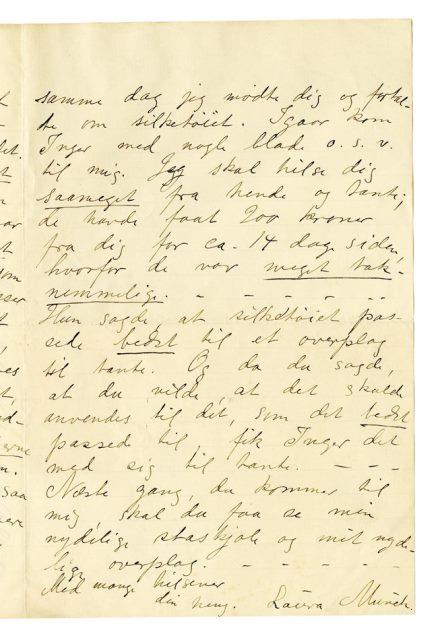 samme dag jeg mødte dig og fortal-
te om silketöiet. Igaar kom
Inger med nogle blade o. s. v.
til mig. Jeg skal hilse dig
saameget fra hende og tante;
de havde faat 200 kroner
fra dig for ca. 14 dage siden,
hvorfor de var meget tak-
nemmelige. - - - - -
Hun sagde, at silketöiet pas-
sede bedst til et overplag
til tante. Og da du sagde,
at du vilde, at det skulde
anvendes til det, som det bedst
passed til, fik Inger det
med sig til tante. - - -
Næste gang, du kommer til
mig, skal du faa se min
nydelige staskjole og mit nyde-
lige overplag. - - - - -
Med mange hilsener
din heng. Laura Munch.